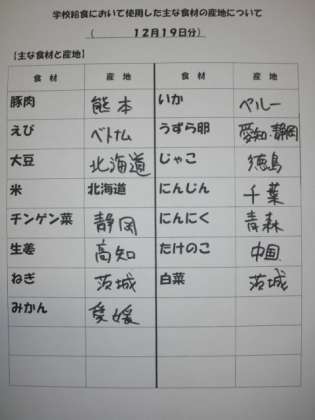 学校給食において使用した主な食材の産地について
（　　12月19日分）
【主な食材と産地】
食材　産地　食材　産地
豚肉　熊本　いか　ペルー
えび　ベトナム　うずら卵　愛知・静岡
大豆　北海道　じゃこ　徳島
米　北海道　にんじん　千葉
チンゲン菜　静岡　にんにく　青森
生姜　高知　たけのこ　中国
ねぎ　茨城　白菜　茨城
みかん　愛媛